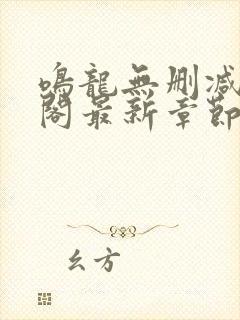 鳴龍無刪減
閣最新章節
幺方